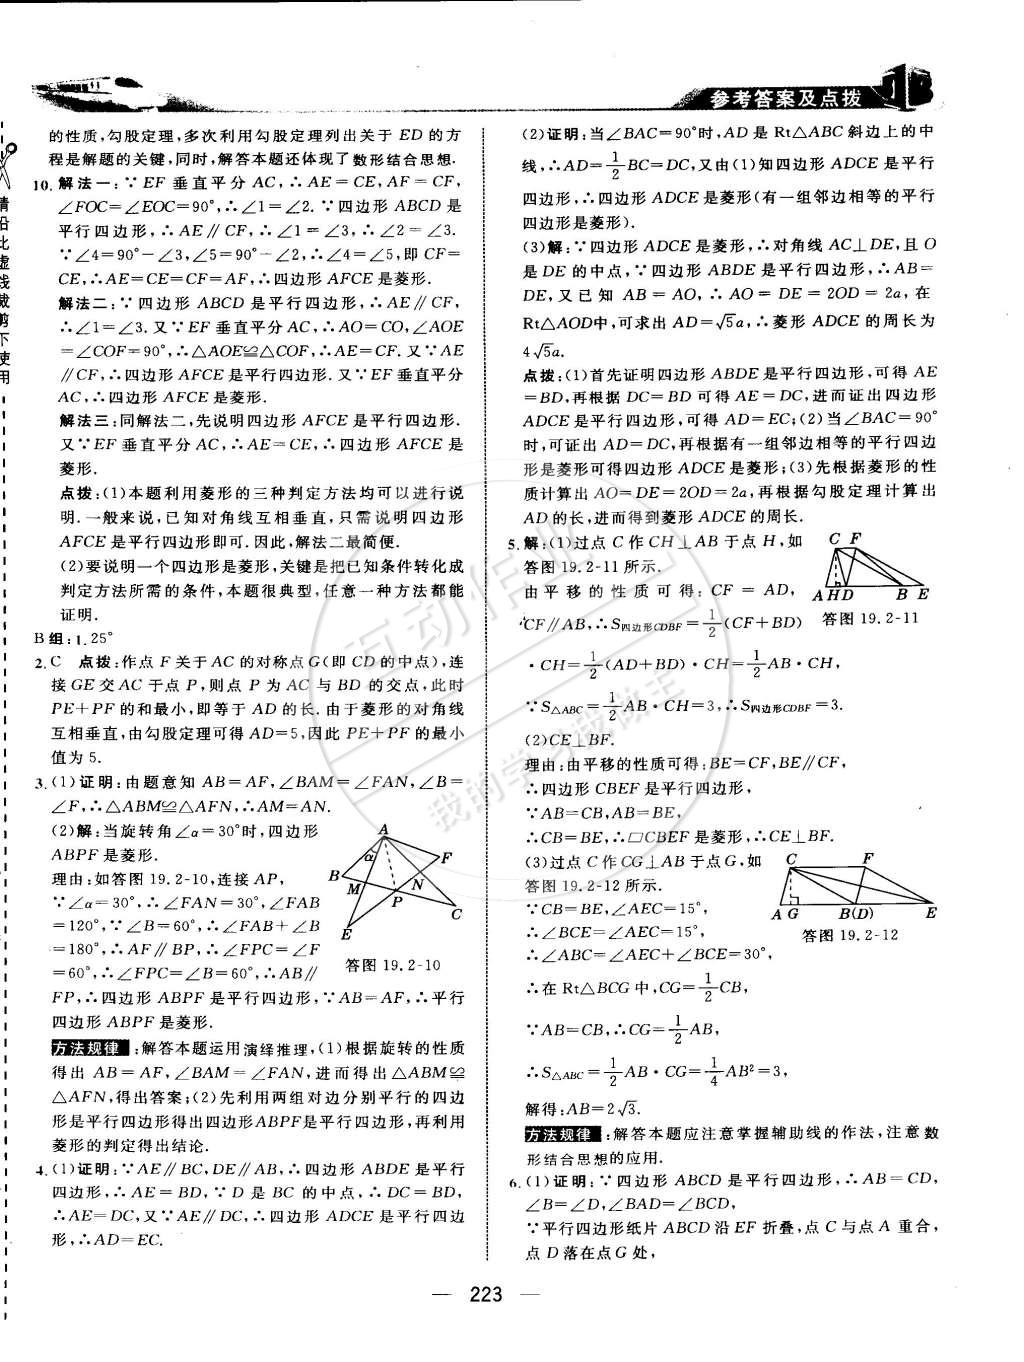 参考答案及点拨
请沿此虚线裁剪下使用
的性质,勾股定理,多次利用勾股定理列出关于 ED 的方
程是解题的关键,同时,解答本题还体现了数形结合思想.
10. 解法一:∵ EF 垂直平分 AC,∴AE=CE,AF=CF,
∠FOC=∠EOC=90°,∴∠1=∠2.∵四边形 ABCD 是
平行四边形,∴AE∥CF,∴∠1=∠3,∴∠2=∠3.
∵∠4=90°-∠3,∠5=90°-∠2,∴∠4=∠5,即 CF=
CE,∴AE=CE=CF=AF,∴四边形 AFCE 是菱形.
解法二:∵ 四边形 ABCD 是平行四边形,∴AE∥CF,
∴∠1=∠3.又∵EF 垂直平分 AC,∴AO=CO,∠AOE
=∠COF=90°,∴△AOE≌△COF,∴AE=CF.又∵AE
∥CF,∴四边形 AFCE 是平行四边形.又∵EF 垂直平分
AC,∴四边形 AFCE 是菱形.
解法三:同解法二,先说明四边形 AFCE 是平行四边形.
又∵EF 垂直平分 AC,∴AE=CE,∴四边形 AFCE 是
菱形.
点拨:(1)本题利用菱形的三种判定方法均可以进行说
明.一般来说,已知对角线互相垂直,只需说明四边形
AFCE 是平行四边形即可.因此,解法二最简便.
(2)要说明一个四边形是菱形,关键是把已知条件转化成
判定方法所需的条件,本题很典型,任意一种方法都能
证明.
B 组:1. 25°
2. C 点拨:作点 F 关于 AC 的对称点 G(即 CD 的中点),连
接 GE 交 AC 于点 P,则点 P 为 AC 与 BD 的交点,此时
PE+PF 的和最小,即等于 AD 的长.由于菱形的对角线
互相垂直,由勾股定理可得 AD=5,因此 PE+PF 的最小
值为 5.
3. (1)证明:由题意知 AB=AF,∠BAM=∠FAN,∠B=
∠F,∴△ABM≌△AFN,∴AM=AN.
(2)解:当旋转角∠α=30°时,四边形
ABPF 是菱形.
理由:如答图 19.2-10,连接 AP,
∵∠α=30°,∴∠FAN=30°,∠FAB
=120°,∵∠B=60°,∴∠FAB+∠B
=180°,∴AF∥BP,∴∠FPC=∠F
=60°,∴∠FPC=∠B=60°,∴AB∥
FP,∴四边形 ABPF 是平行四边形,∵AB=AF,∴平行
四边形 ABPF 是菱形.
A
α
F
B
M
N
P
C
E
答图 19.2-10
方法规律:解答本题运用演绎推理,(1)根据旋转的性质
得出 AB=AF,∠BAM=∠FAN,进而得出△ABM≌
△AFN,得出答案;(2)先利用两组对边分别平行的四边
形是平行四边形得出四边形ABPF是平行四边形,再利用
菱形的判定得出结论.
4. (1)证明:∵AE∥BC,DE∥AB,∴四边形 ABDE 是平行
四边形,∴AE=BD,∵D 是 BC 的中点,∴DC=BD,
∴AE=DC,又∵AE∥DC,∴四边形 ADCE 是平行四边
形,∴AD=EC.
(2)证明:当∠BAC=90°时,AD 是 Rt△ABC 斜边上的中
线,∴AD=1/2BC=DC,又由(1)知四边形 ADCE 是平行
四边形,∴四边形 ADCE 是菱形(有一组邻边相等的平行
四边形是菱形).
(3)解:∵四边形 ADCE 是菱形,∴对角线 AC⊥DE,且 O
是 DE 的中点,∵四边形 ABDE 是平行四边形,∴AB=
DE,又已知 AB=AO,∴AO=DE=2OD=2a,在
Rt△AOD中,可求出 AD=√5a,∴菱形 ADCE 的周长为
4√5a.
点拨:(1)首先证明四边形 ABDE 是平行四边形,可得 AE
=BD,再根据 DC=BD 可得 AE=DC,进而证出四边形
ADCE 是平行四边形,可得 AD=EC;(2)当∠BAC=90°
时,可证出 AD=DC,再根据有一组邻边相等的平行四边
形是菱形可得四边形 ADCE 是菱形;(3)先根据菱形的性
质计算出 AO=DE=2OD=2a,再根据勾股定理计算出
AD 的长,进而得到菱形 ADCE 的周长.
5. 解:(1)过点 C 作 CH⊥AB 于点 H,如
答图 19.2-11 所示.
由平移的性质可得:CF=AD,
CF∥AB,∴S四边形CDBF=1/2(CF+BD)
·CH=1/2(AD+BD)·CH=1/2AB·CH,
∵S△ABC=1/2AB·CH=3,∴S四边形CDBF=3.
C F
A H D B E
答图 19.2-11
(2)CE⊥BF.
理由:由平移的性质可得:BE=CF,BE∥CF,
∴四边形 CBEF 是平行四边形,
∵AB=CB,AB=BE,
∴CB=BE,∴□CBEF 是菱形,∴CE⊥BF.
(3)过点 C 作 CG⊥AB 于点 G,如
答图 19.2-12 所示.
∵CB=BE,∠AEC=15°,
∴∠BCE=∠AEC=15°,
∴∠ABC=∠AEC+∠BCE=30°,
∴在 Rt△BCG 中,CG=1/2CB,
∵AB=CB,∴CG=1/2AB,
∴S△ABC=1/2AB·CG=1/4AB²=3,
解得:AB=2√3.
C F
A G B(D) E
答图 19.2-12
方法规律:解答本题应注意掌握辅助线的作法,注意数
形结合思想的应用.
6. (1)证明:∵四边形 ABCD 是平行四边形,∴AB=CD,
∠B=∠D,∠BAD=∠BCD,
∵平行四边形纸片 ABCD 沿 EF 折叠,点 C 与点 A 重合,
点 D 落在点 G 处,
— 223 —
互动作业
我的学习我做主